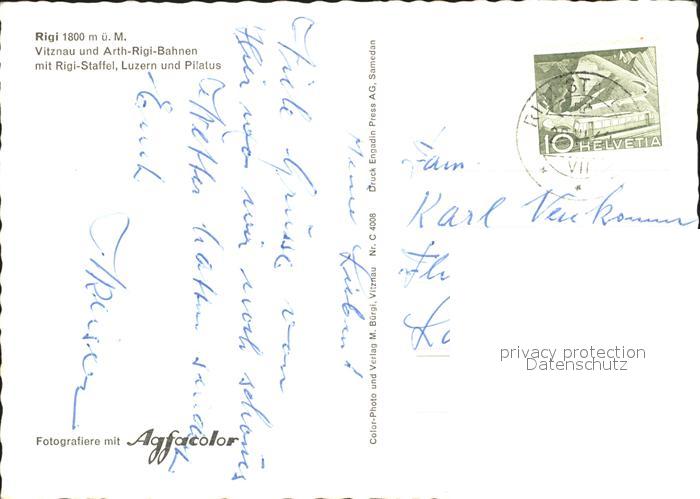 Rigi 1800 m ü. M.
Vitznau und Arth-Rigi-Bahnen
mit Rigi-Staffel, Luzern und Pilatus
Meine Lieben!
Viele Grüsse von
hier wo wir noch schönes
Wetter hatten sendet
Euch
Fotografiere mit Agfacolor
Color-Photo und Verlag M. Bürgi, Vitznau Nr. C 4008 Druck Engadin Press AG, Samedan
10 HELVETIA
VII
Fam.
Karl
privacy protection
Datenschutz